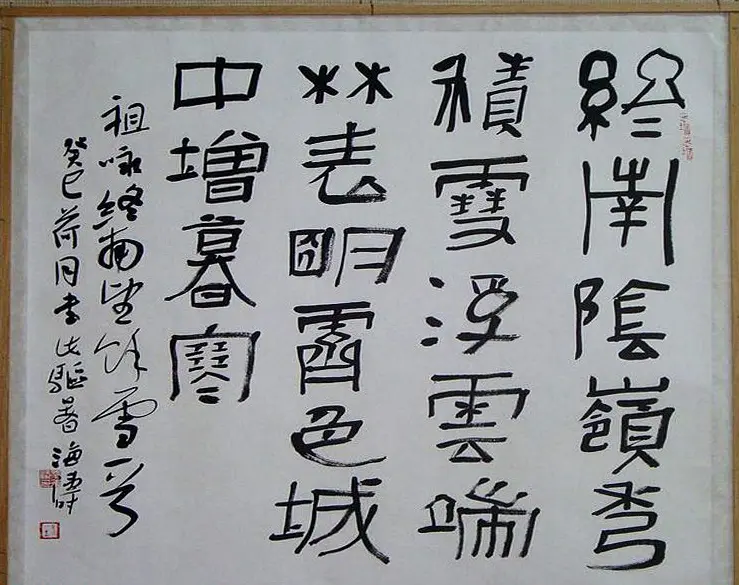 終南陰嶺秀
積雪浮雲端
林表明霽色城
中增暮寒
祖咏終南望餘雪一首
癸巳荷月書此驅暑 海